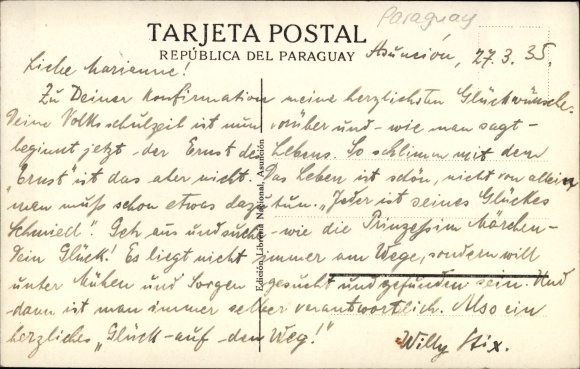 Paraguay
TARJETA POSTAL
REPÚBLICA DEL PARAGUAY
Asunción, 27.3.35.
Liebe Marianne!
Zu Deiner Konfirmation meine herzlichsten Glückwünsche.
Deine Volksschulzeit ist nun vorüber und - wie man sagt -
beginnt jetzt der Ernst des Lebens. So schlimm mit dem
"Ernst" ist das aber nicht. Das Leben ist schön, nicht von allein,
man muß schon etwas dazu tun. "Jeder ist seines Glückes
Schmied". Geh aus und suche - wie die Prinzessin im Märchen -
Dein Glück! Es liegt nicht immer am Wege, sondern will
unter Mühen und Sorgen gesucht und gefunden sein. Und
dann ist man immer selber verantwortlich. Also ein
herzliches "Glück - auf - den Weg!"
Willy Stix.
Edición Librería Nacional, Asunción